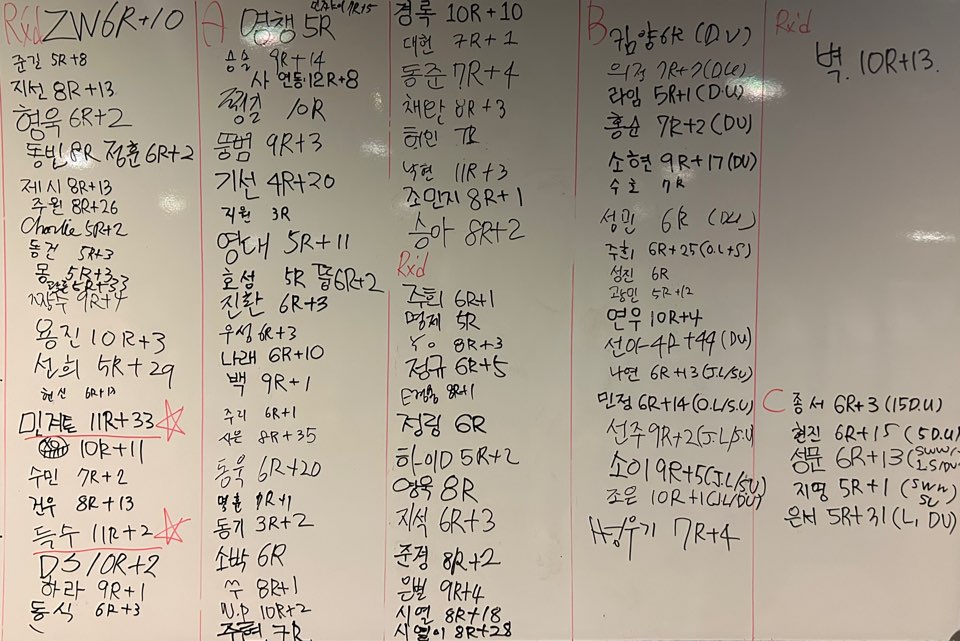 Rx'd ZW 6R+10
준길 5R+8
지선 8R+13
형욱 6R+2
동빈 8R 정훈 6R+2
제시 8R+13
주원 8R+26
Charlie 5R+2
동건 5R+3
몽 5R+3
5R+33
9R+4
용진 10R+3
선희 5R+29
현신 6R+13
민계트 11R+33
10R+11
수민 7R+2
건우 8R+13
득수 11R+2
DS 10R+2
하라 9R+1
동식 6R+3
A 영쟁 5R
승훈 9R+14
사 연동 12R+8
10R
뚱범 9R+3
기선 4R+20
지원 3R
영대 5R+11
호섭 5R 뚭 6R+2
진환 6R+3
우성 6R+3
나래 6R+10
백 9R+1
주리 6R+1
사은 8R+35
동욱 6R+20
명훈 9R+1
동기 3R+2
소박 6R
쑤 8R+1
N.P 10R+2
주현 7R
경록 10R+10
대현 7R+1
동준 7R+4
채란 8R+3
허인 7R
낙현 11R+3
조민지 8R+1
승아 8R+2
Rx'd
주희 6R+1
명제 5R
8R+3
정규 6R+5
8R+1
정림 6R
5R+2
영욱 8R
지석 6R+3
준경 8R+2
은별 9R+4
시열 8R+18
시열이 8R+28
B 김양 6R (DU)
의정 7R+7 (DU)
라임 5R+1 (D.U)
홍순 7R+2 (DU)
소현 9R+17 (DU)
수호 7R
성민 6R (DU)
주희 6R+25 (O.L+S)
성진 6R
광민 5R+12
연우 10R+4
선아 4R+44 (DU)
나연 6R+13 (J.L/S.U)
민정 6R+14 (O.L/S.U)
선주 9R+2 (J.L/S.U)
소이 9R+5 (J.L/SU)
조은 10R+1 (J.L/DU)
7R+4
Rx'd
벽. 10R+13.
C 종서 6R+3 (15D.U)
현진 6R+15 (5D.U)
성문 6R+13
지명 5R+1
은서 5R+31 (L, DU)